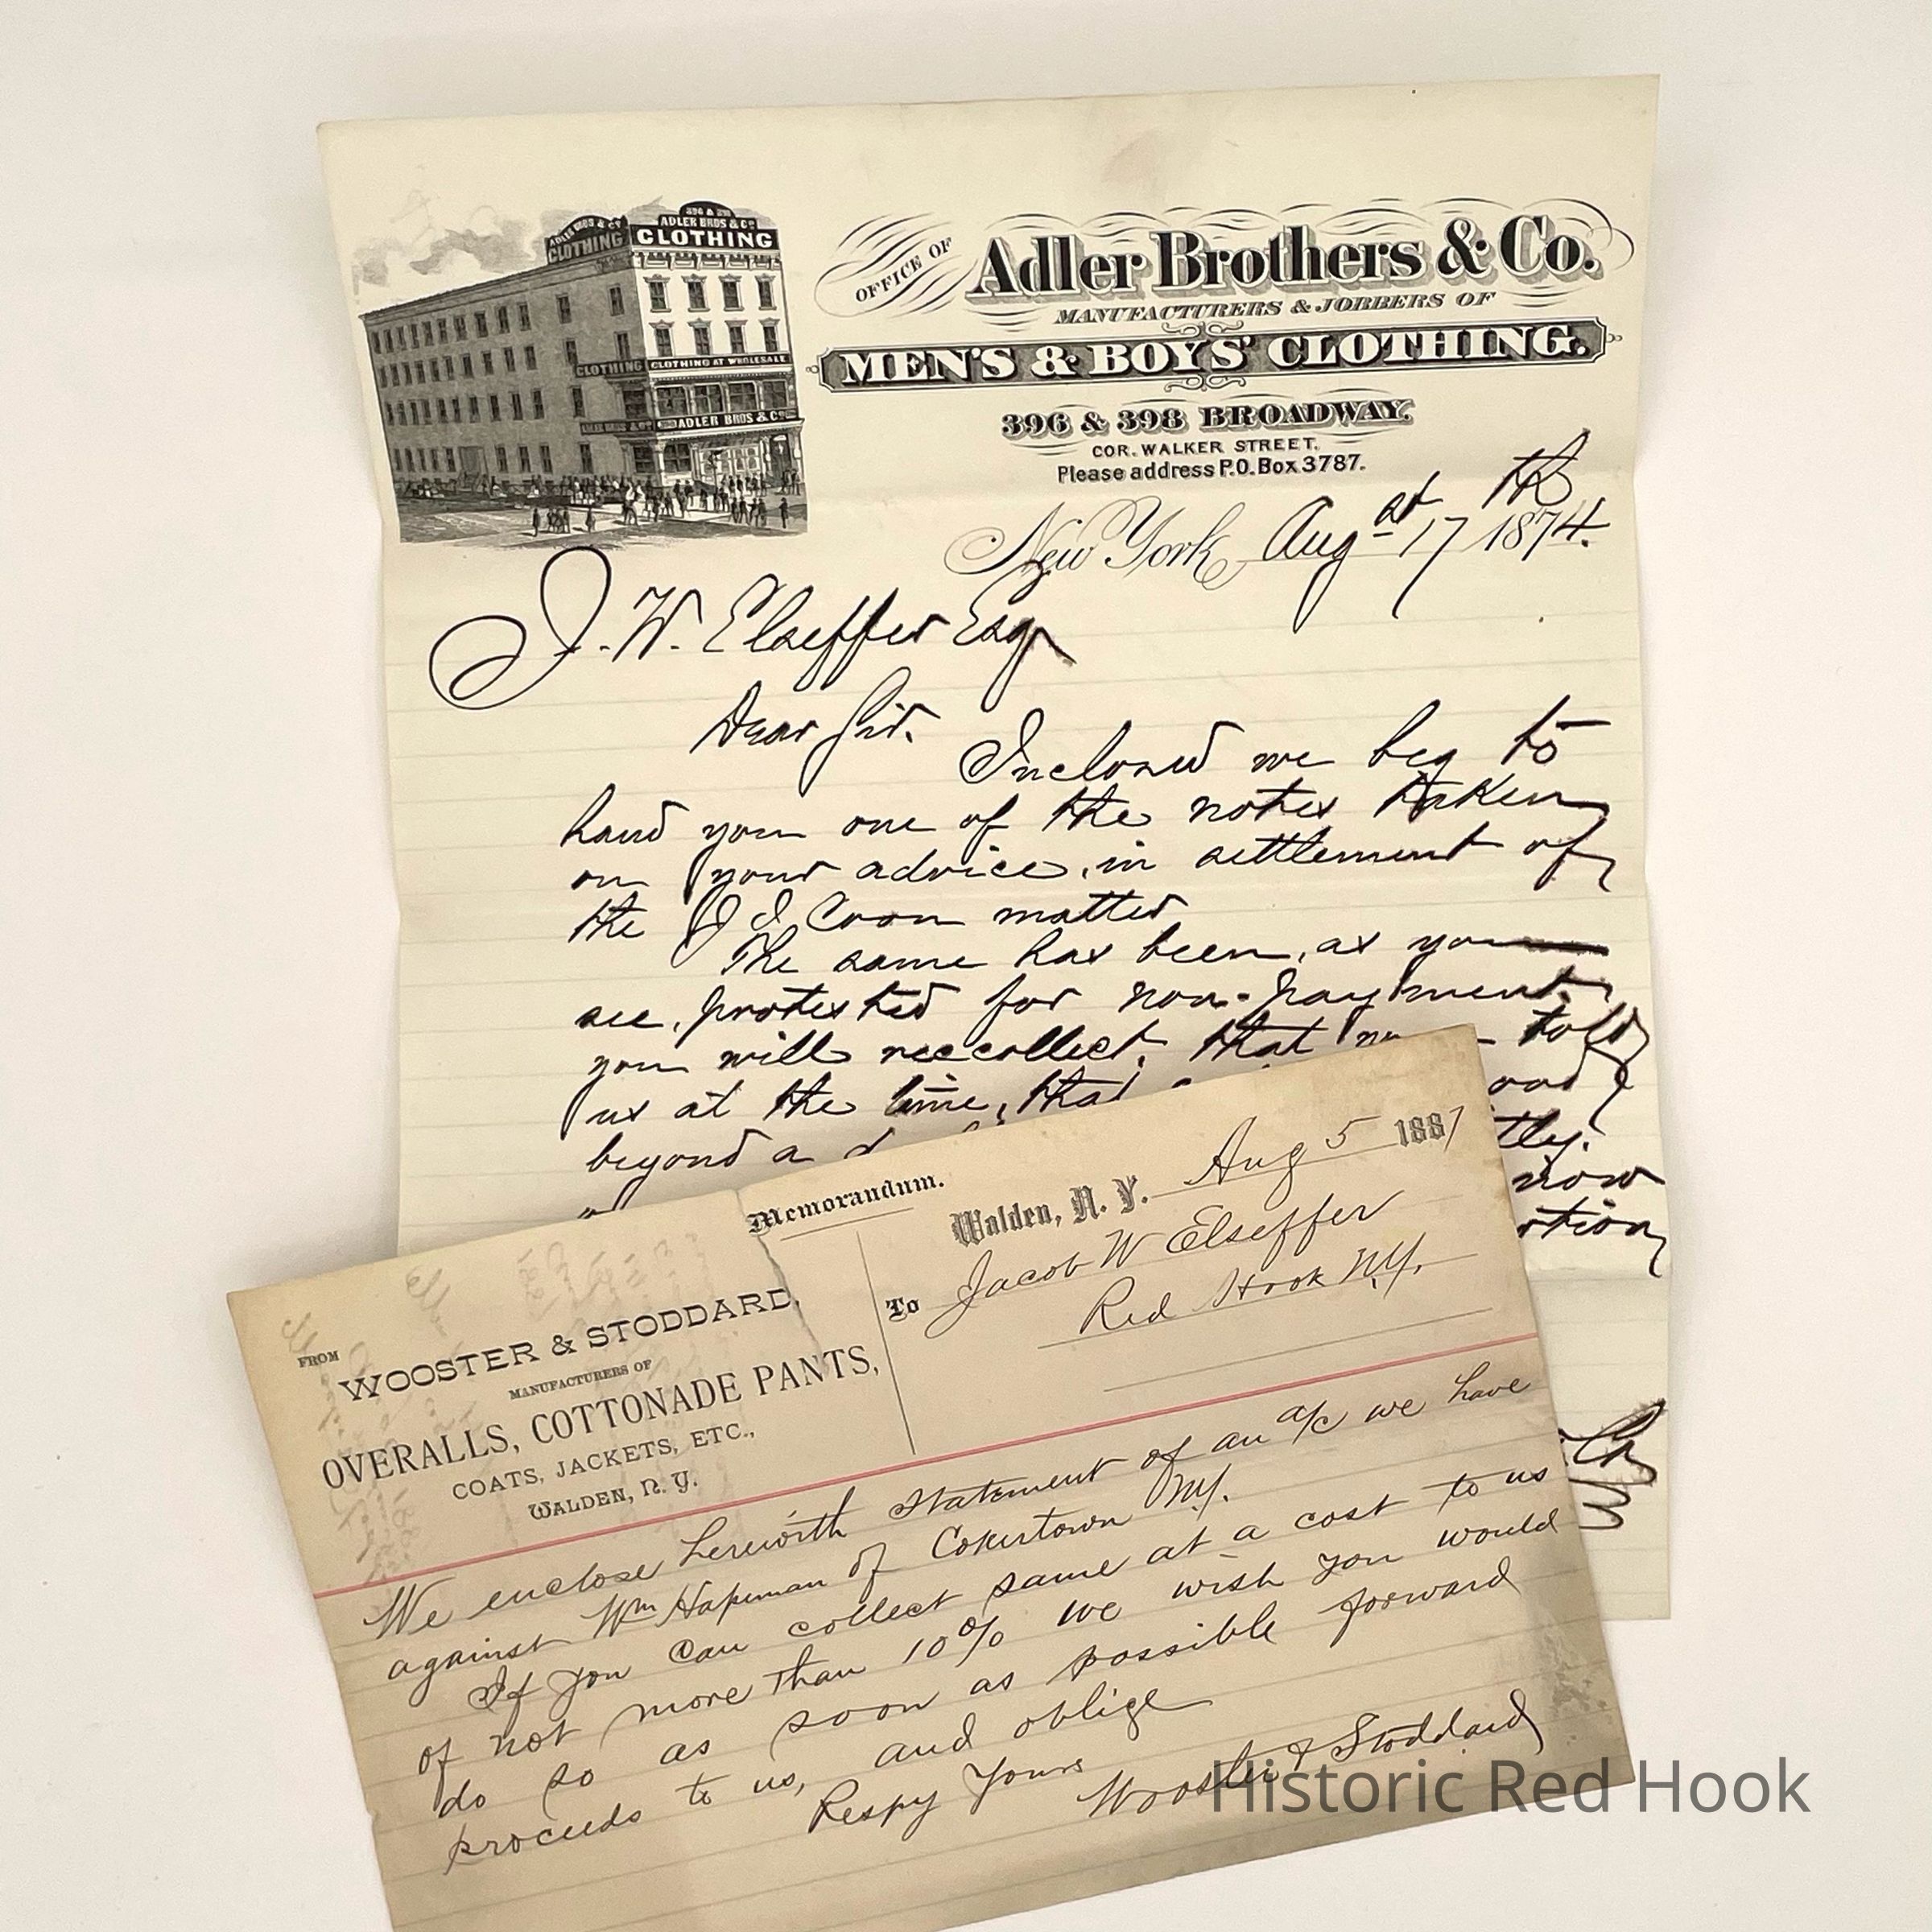 ADLER BROS & Co
CLOTHING
396 & 398
ADLER BROS & Co
CLOTHING
CLOTHING
CLOTHING AT WHOLESALE
ADLER BROS & Co
ADLER BROS & Co
OFFICE OF
Adler Brothers & Co.
MANUFACTURERS & JOBBERS OF
MEN'S & BOYS' CLOTHING.
396 & 398 BROADWAY.
COR. WALKER STREET.
Please address P.O. Box 3787.
New York Augst 17th 1874.
J. W. Elseffer Esq
Dear Sir.
Inclosed we beg to
hand you one of the notes taken
on your advice, in settlement of
the J I Coon matter
The same has been, as you
see, protested for non-payment.
you will reccollect, that told
us at the time, that
beyond a
now
Co
Memorandum.
Walden, N. Y. Aug 5 1887
To Jacob W Elseffer
Red Hook N.Y.
FROM
WOOSTER & STODDARD,
MANUFACTURERS OF
OVERALLS, COTTONADE PANTS,
COATS, JACKETS, ETC.,
WALDEN, N. Y.
We enclose herewith Statement of an a/c we have
against Wm Hapeman of Cokertown N.Y.
If you can collect same at a cost to us
of not more than 10% we wish you would
do so as soon as possible forward
proceeds to us, and oblige
Respy Yours
Wooster & Stoddard
Historic Red Hook